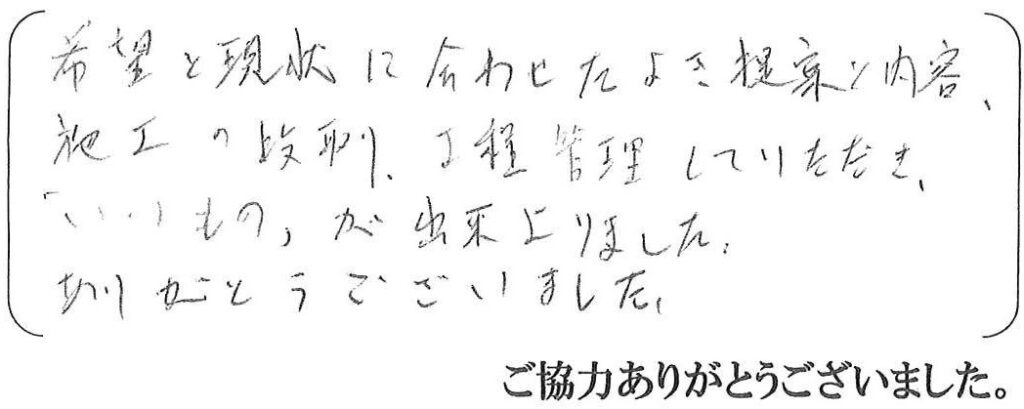 希望と現状に合わせたよき提案と内容、
施工の段取り、工程管理していただき、
「いいもの」が出来上りました。
ありがとうございました。
ご協力ありがとうございました。